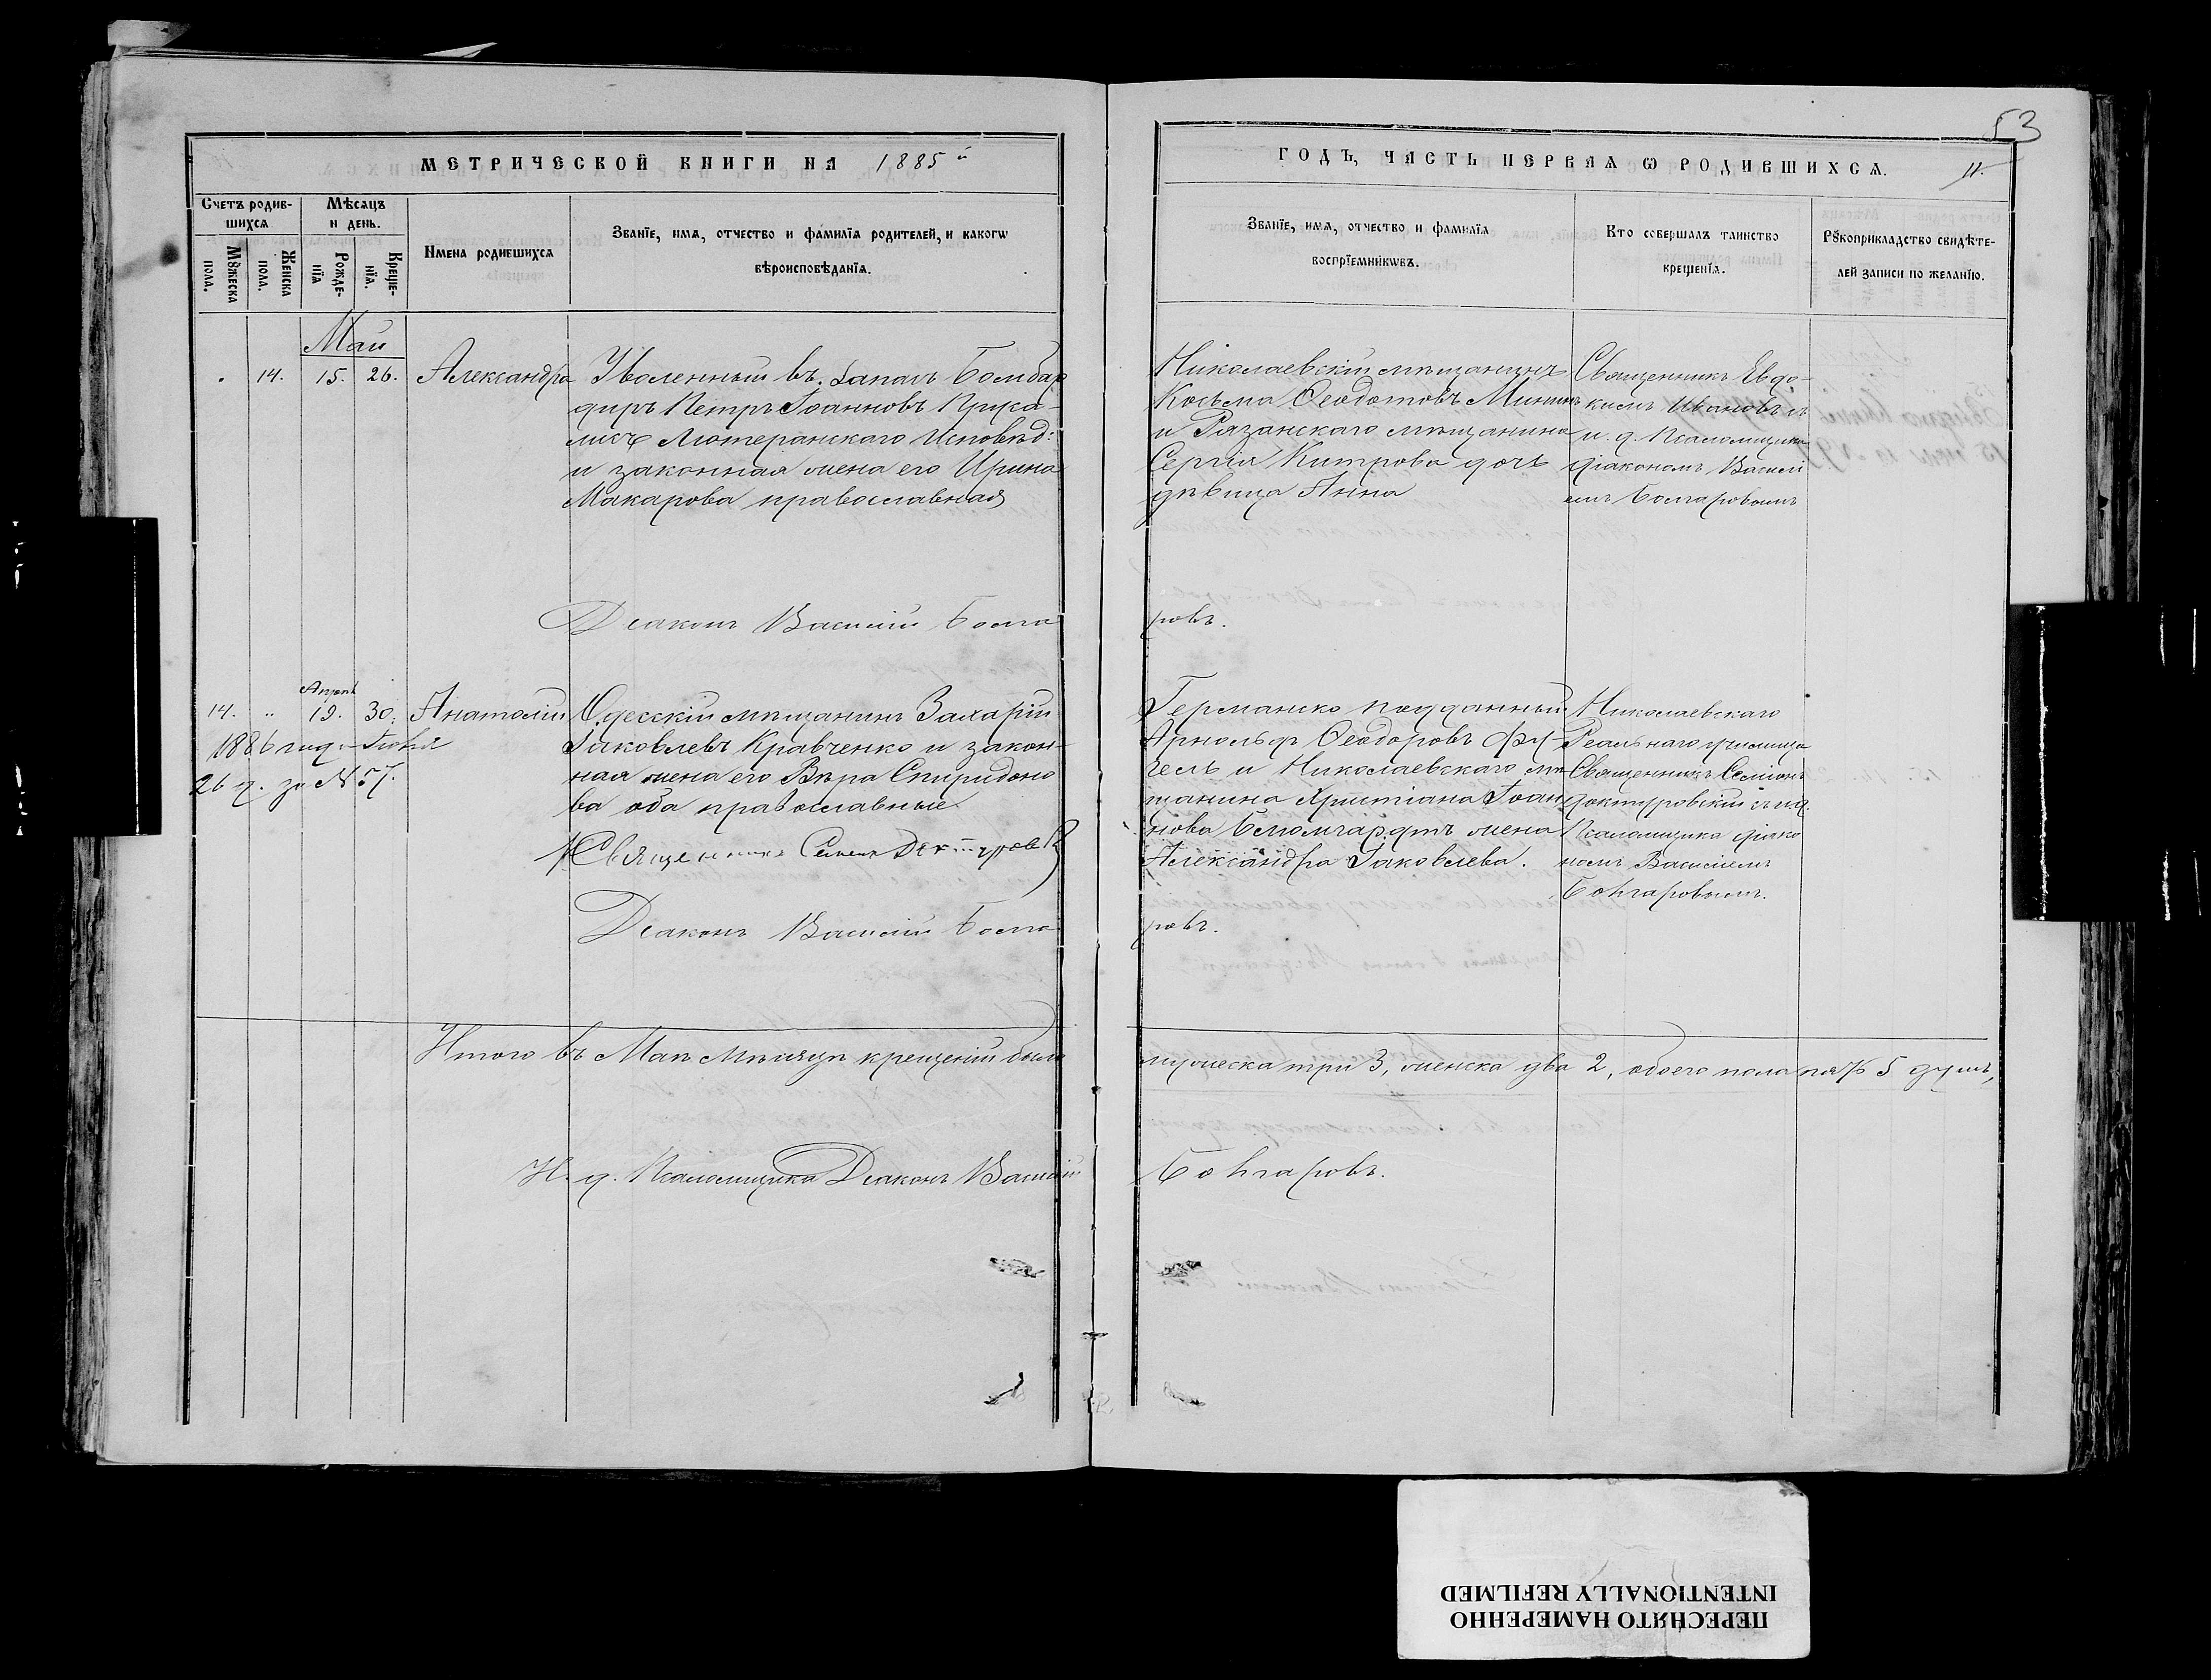 53
МЕТРИЧЕСКОЙ КНИГИ НА 1885 й
ГОДЪ, ЧАСТЬ ПЕРВАЯ Ѡ РОДИВШИХСѦ.
11.
Счетъ родив-
шихсѧ
Мѣсяцъ
и день.
Мꙋжеска
пола.
Женска
пола.
Рожде-
нїѧ
Креще-
нїѧ.
Имена родившихсѧ
Званїе, имѧ, отчество и фамилїѧ родителей, и какогѡ
вѣроисповѣданїѧ.
Званїе, имѧ, отчество и фамилїѧ
воспрїемникѡвъ.
Кто совершалъ таинство
крещенїѧ.
Рꙋкоприкладство свидѣте-
лей записи по желанїю.
Май
14. 15. 26. Александра
Уволенный въ запасъ Бомбар
диръ Петръ Іоанновъ
Лютеранскаго Исповѣд:
и законная жена его Ирина
Макарова православная
Николаевскій мѣщанинъ
Косьма Ѳеодотовъ Мининъ
и Рязанскаго мѣщанина
Сергія Китрова дочь
дѣвица Анна
Священникъ Евдо-
кимъ Ивановъ съ
и. д. Псаломщика
діакономъ Василі
емъ Болгаровымъ
Діаконъ Василій Болга
ровъ.
Апрѣль
14. " 19. 30. Анатолій
1886 год. Іюня
26 д. за № 57.
Одесскій мѣщанинъ Захарій
Іаковлевъ Кравченко и закон-
ная жена его Вѣра Спиридоно
ва оба православные
Священникъ Симеонъ
Германско подданный
Арнольдъ Ѳеодоровъ Фи-
гель и Николаевскаго мѣ
щанина Христіана Іоан
нова Бломгардтъ жена
Александра Іаковлева.
Николаевскаго
Реальнаго училища
Священникъ Симеонъ
съ и. д.
Псаломщика діяко
номъ Василіемъ
Болгаровымъ.
Діаконъ Василій Болга
ровъ.
Итого въ Маѣ мѣсяцѣ крещеній было
мужеска три 3, женска два 2, обоего пола пять 5 душъ,
И. д. Псаломщика Діаконъ Василій
Болгаровъ.
ПЕРЕСНЯТО НАМЕРЕННО
INTENTIONALLY REFILMED